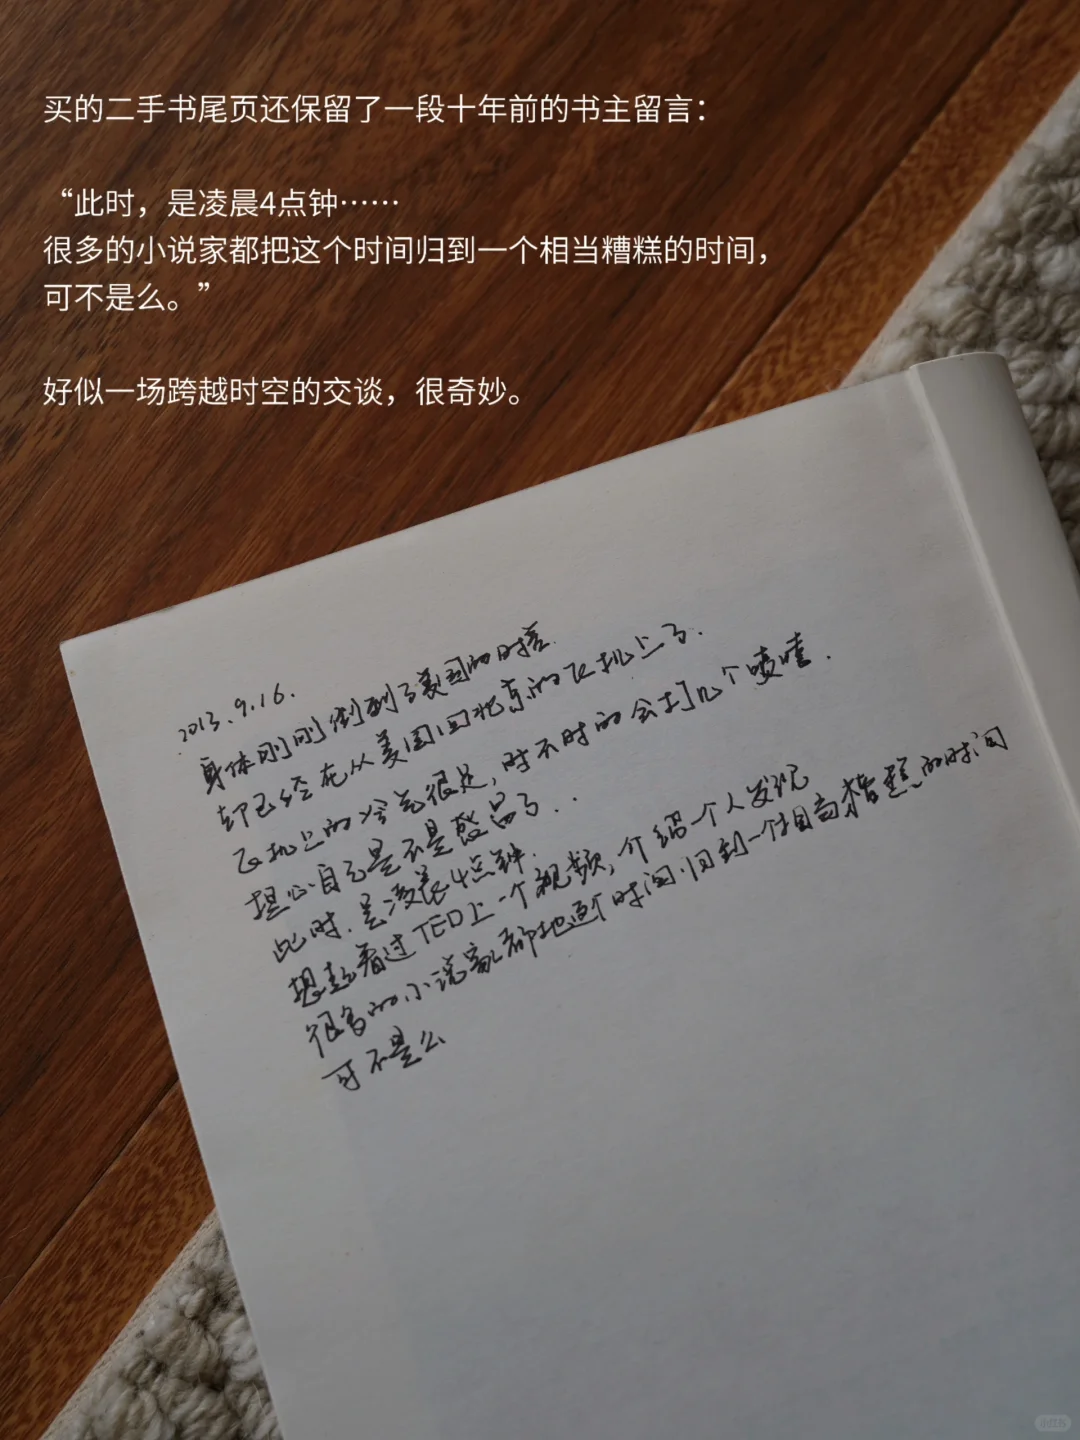 买的二手书尾页还保留了一段十年前的书主留言：
“此时，是凌晨4点钟……
很多的小说家都把这个时间归到一个相当糟糕的时间，
可不是么。”
好似一场跨越时空的交谈，很奇妙。
2013.9.16.
身体刚刚倒到了美国的时差.
却已经在从美国回北京的飞机上了.
飞机上的冷气很足，时不时的会打几个喷嚏.
担心自己是不是感冒了..
此时.是凌晨4点钟.
想起看过TED上一个视频，介绍一个人发现
很多的小说家都把这个时间.归到一个相当糟糕的时间
可不是么
小红书